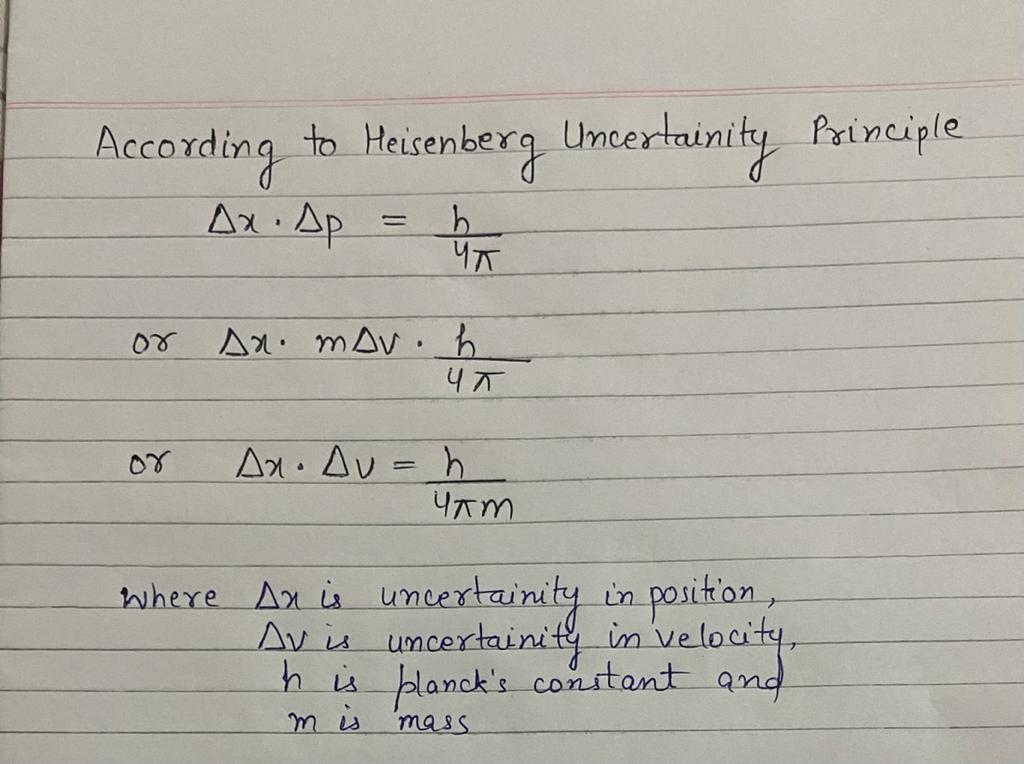 According to Heisenberg Uncertainity Principle
Δx . Δp = h/4π
or Δx . mΔv . h/4π
or Δx . Δv = h/4πm
where Δx is uncertainity in position,
Δv is uncertainity in velocity,
h is planck's constant and
m is mass